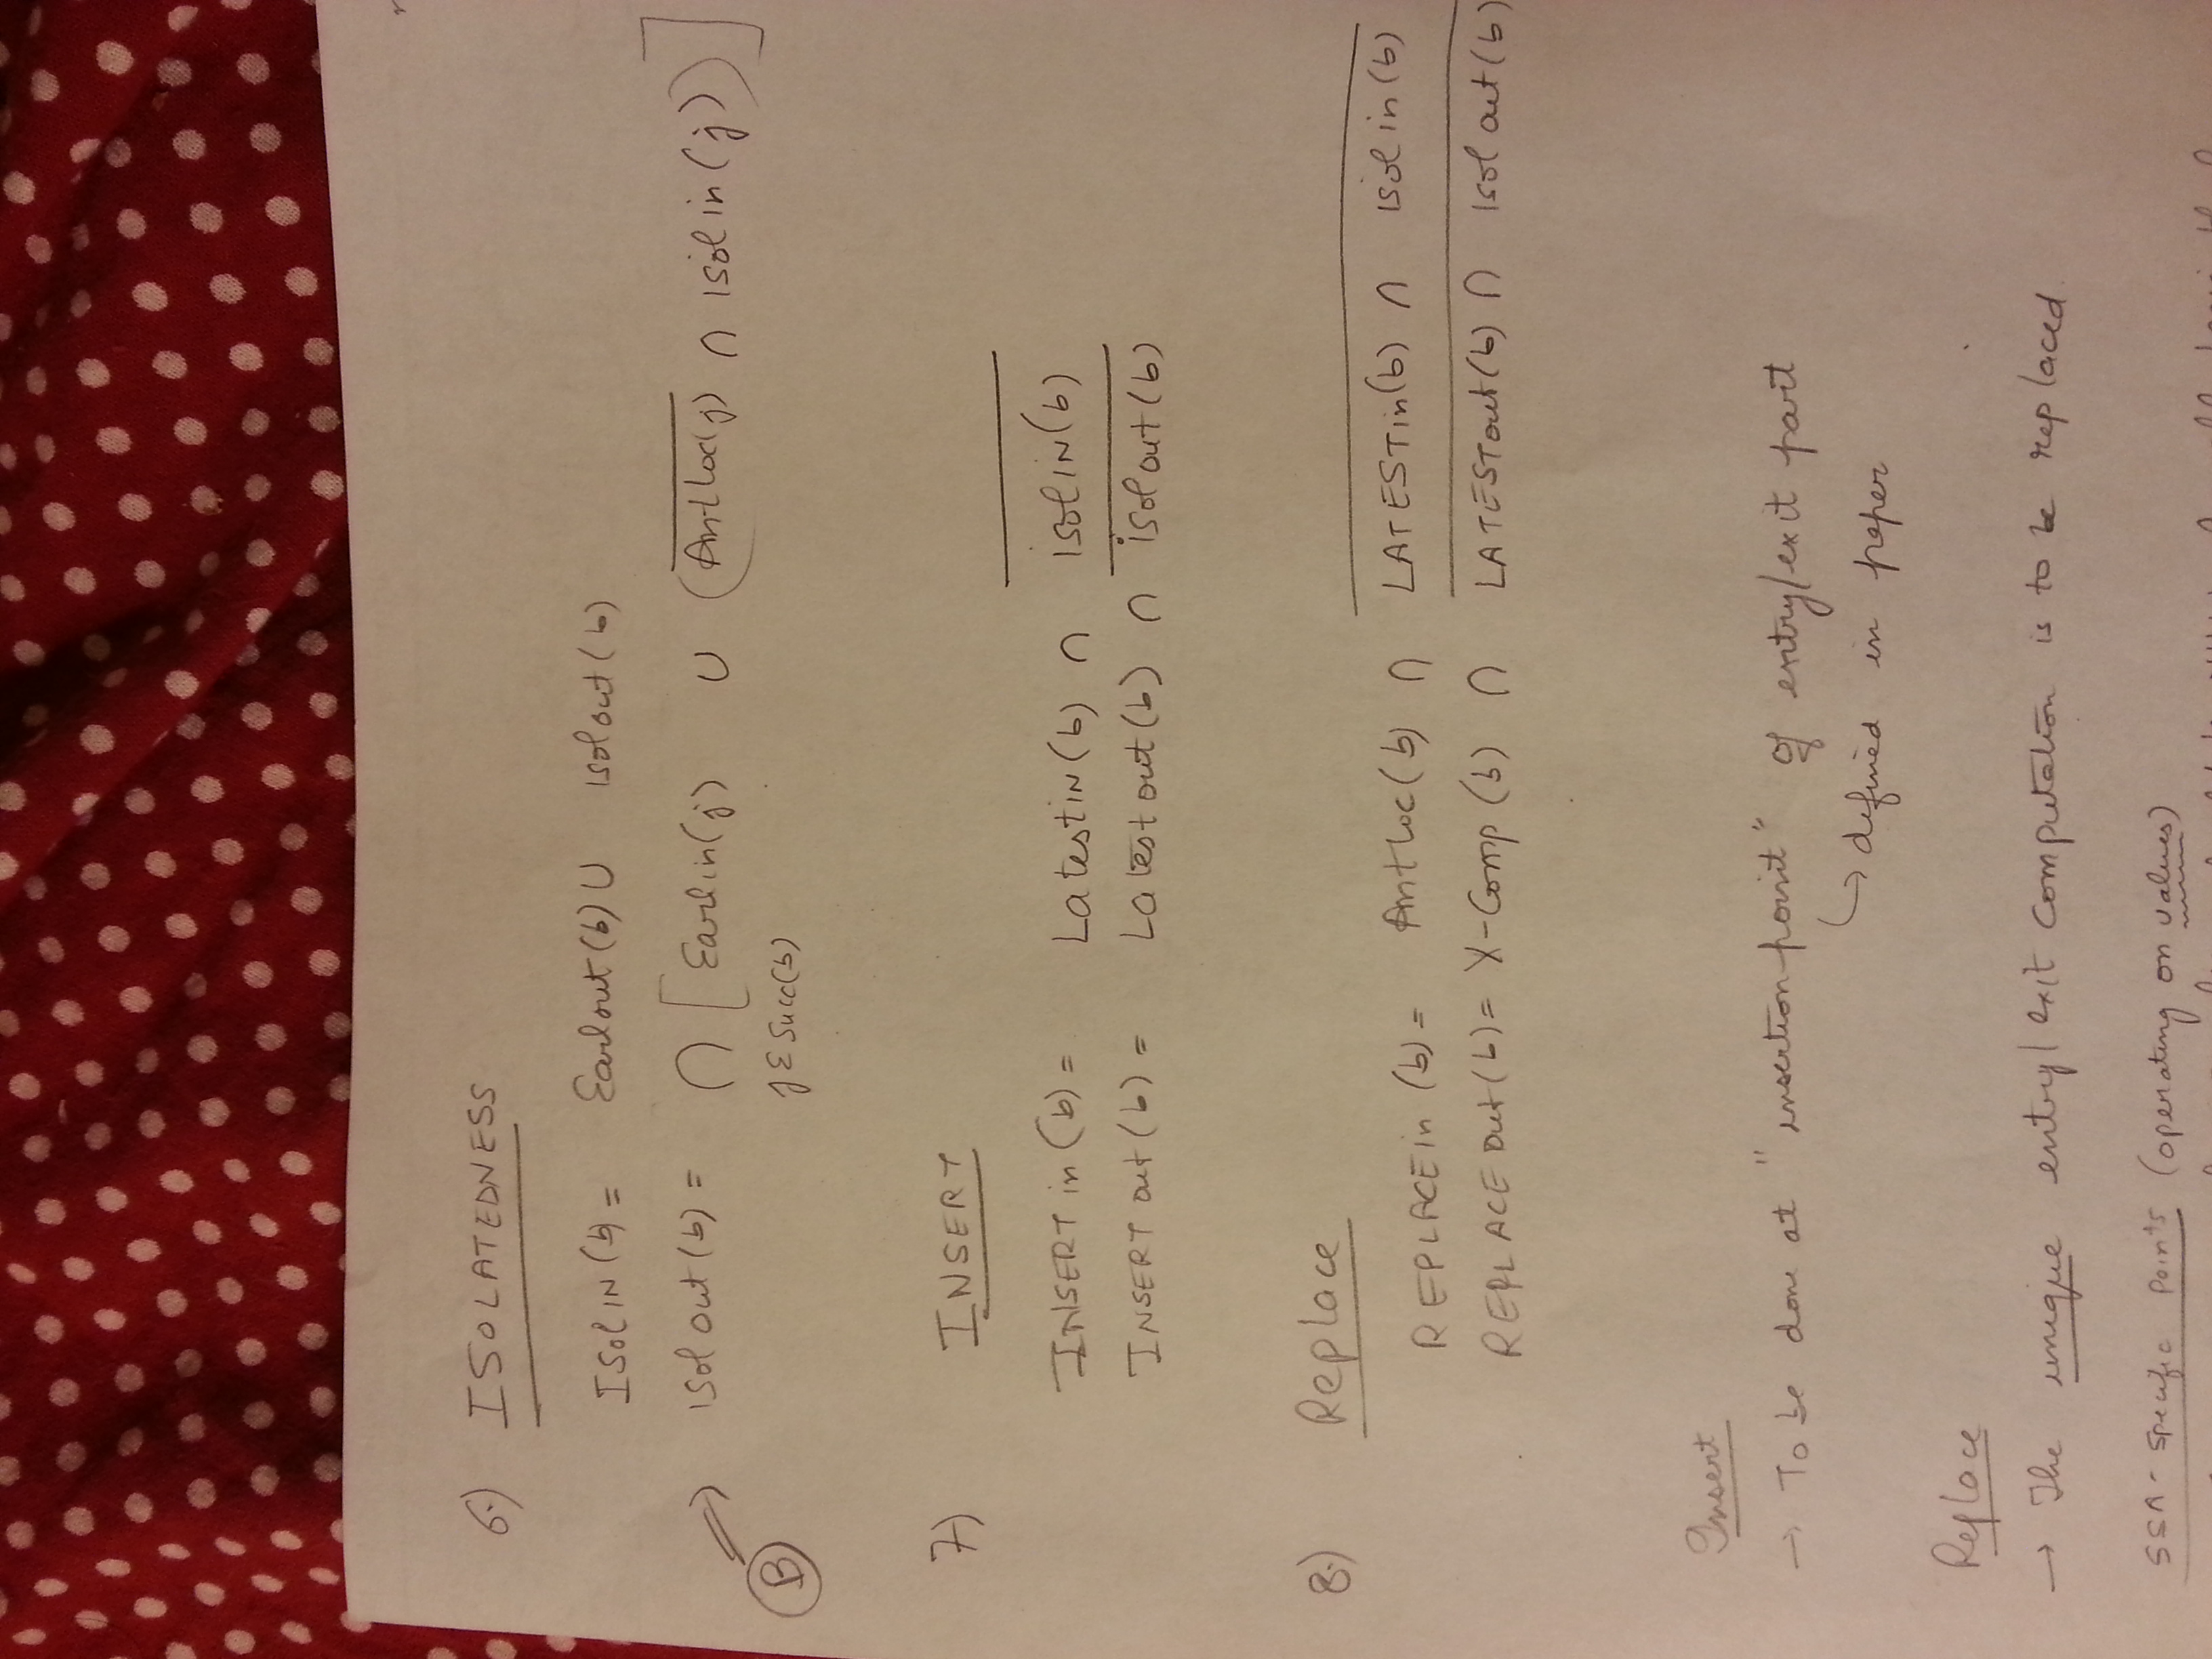 6.) ISOLATEDNESS
ISOLIN(b) = Earlout(b) ∪ isolout(b)
(B) ⇒ isolout(b) = ∩ [Earlin(j) ∪ (A̅n̅t̅l̅o̅c̅(̅j̅)̅ ∩ isolin(j))]
j ε Succ(b)
7.) INSERT
INSERTin(b) = Latestin(b) ∩ i̅s̅o̅l̅i̅n̅(̅b̅)̅
INSERTout(b) = Latestout(b) ∩ i̅s̅o̅l̅o̅u̅t̅(̅b̅)̅
8.) Replace
REPLACEin(b) = Antloc(b) ∩ L̅A̅T̅E̅S̅T̅i̅n̅(̅b̅)̅ ̅∩̅ ̅i̅s̅o̅l̅i̅n̅(̅b̅)̅
REPLACEout(b) = X-Comp(b) ∩ L̅A̅T̅E̅S̅T̅o̅u̅t̅(̅b̅)̅ ̅∩̅ ̅i̅s̅o̅l̅o̅u̅t̅(̅b̅)̅
Insert
→ To be done at "insertion-point" of entry/exit part
↳ defined in paper
Replace
→ The unique entry/exit computation is to be replaced.
SSA-specific points (operating on values)